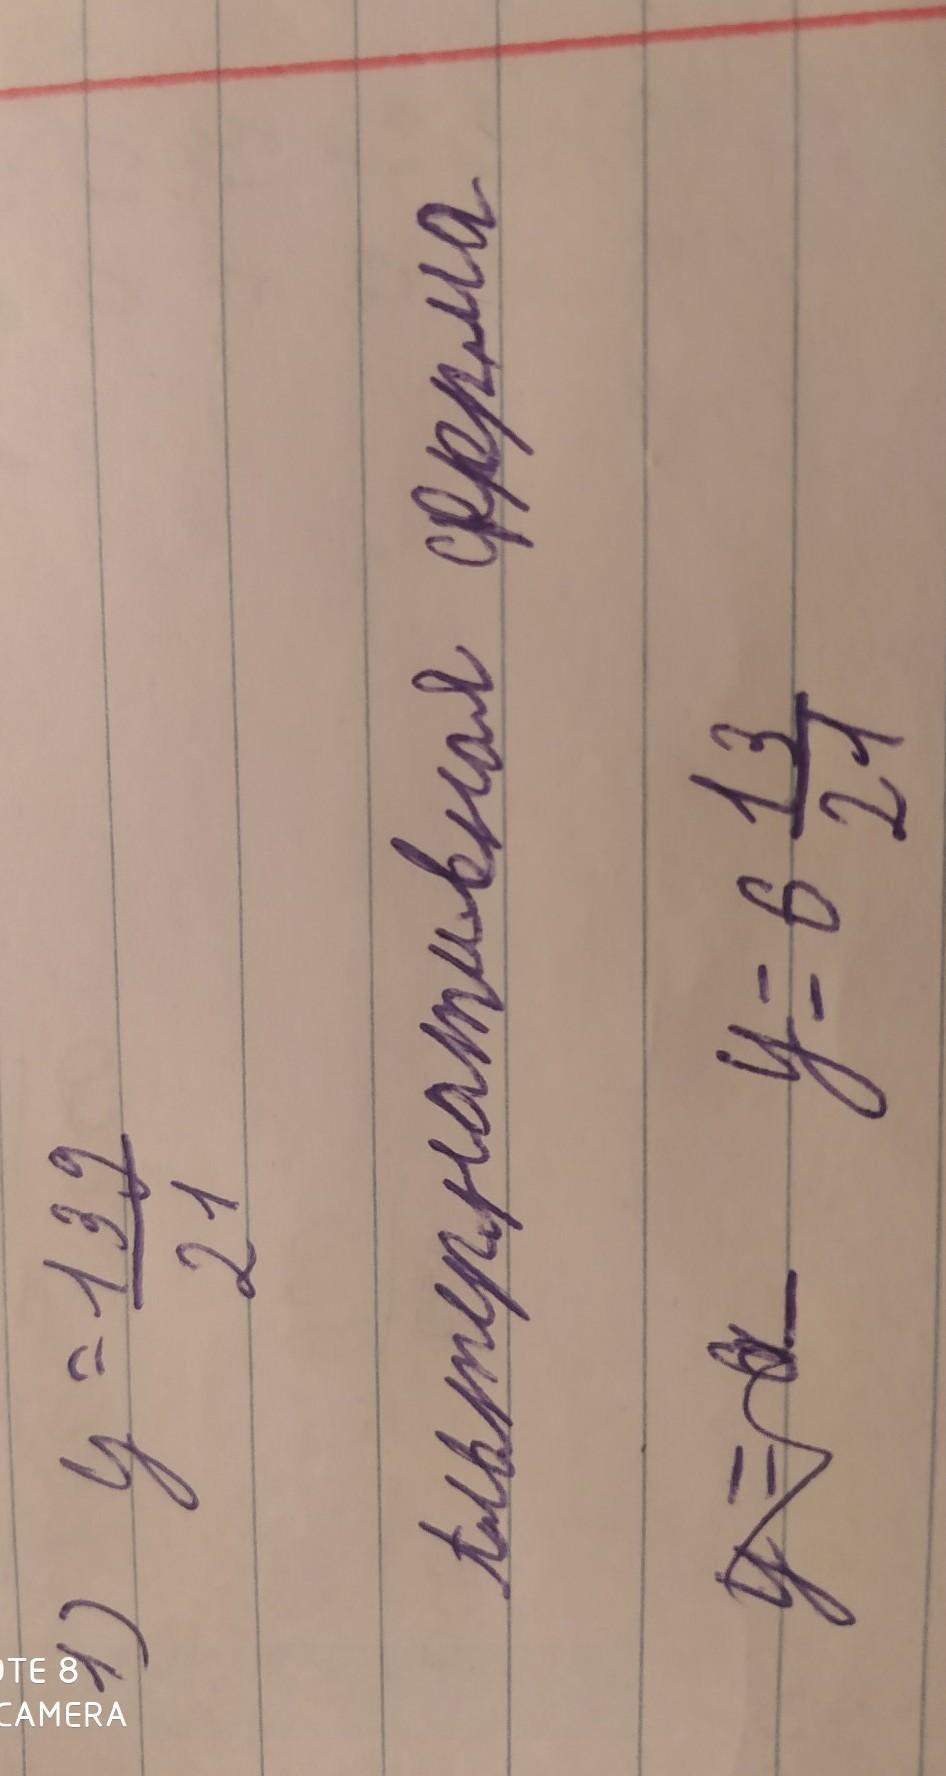 1) y = 139
21
Альтернативная форма
y = 6 13
21
OTE 8
CAMERA